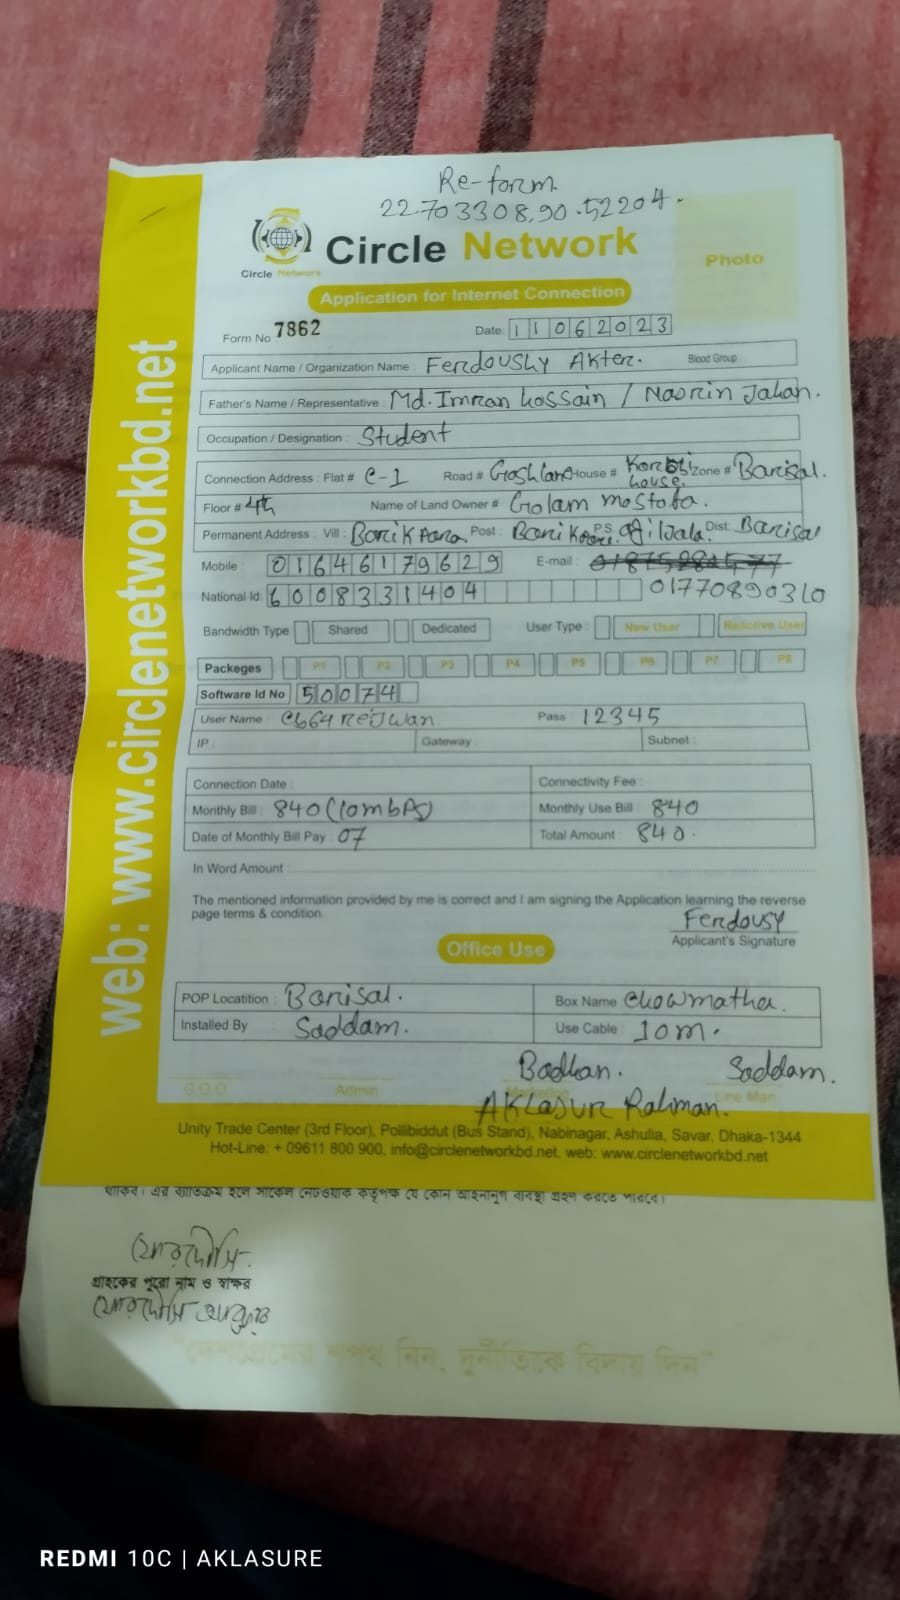 Re-form
22.703308,90.52204.
Circle Network
Circle Network
Photo
Application for Internet Connection
Form No 7862 Date: 11062023
Applicant Name / Organization Name : Ferdoushy Akter. Blood Group
Father's Name / Representative : Md. Imran Hossain / Nasrin Jahan.
Occupation / Designation : Student
Connection Address : Flat # C-1 Road # House # house. Zone # Barisal.
Floor # 4th Name of Land Owner # Golam mostofa.
Permanent Address : Vill : Barik Para Post : P.S. Dist: Barisal
Mobile : 01646179629 E-mail :
National Id: 6008331404 01770890310
Bandwidth Type Shared Dedicated User Type : New User Resctive User
Packeges P1 P2 P3 P4 P5 P6 P7 P8
Software Id No 50074
User Name : cb64rejwan Pass : 12345
IP : Gateway : Subnet :
Connection Date : Connectivity Fee :
Monthly Bill : 840 (10mbps) Monthly Use Bill : 840
Date of Monthly Bill Pay : 07 Total Amount : 840.
In Word Amount :
The mentioned information provided by me is correct and I am signing the Application learning the reverse
page terms & condition.
Ferdousy
Applicant's Signature
Office Use
POP Locatition : Barisal. Box Name Chowmatha.
Installed By : Saddam. Use Cable : 10m.
Badhan. Saddam.
C.O.O Admin Line Man
Aklasur Rahman.
Unity Trade Center (3rd Floor), Pollibiddut (Bus Stand), Nabinagar, Ashulia, Savar, Dhaka-1344
Hot-Line: + 09611 800 900, info@circlenetworkbd.net, web: www.circlenetworkbd.net
web: www.circlenetworkbd.net
থাকিব। এর ব্যতিক্রম হলে সার্কেল নেটওয়ার্ক কর্তৃপক্ষ যে কোন আইনানুগ ব্যবস্থা গ্রহণ করতে পারবে।
ফেরদৌসি
গ্রাহকের পুরো নাম ও স্বাক্ষর
ফেরদৌসি আক্তার
"দেশপ্রেমের শপথ নিন, দুর্নীতিকে বিদায় দিন"
REDMI 10C | AKLASURE